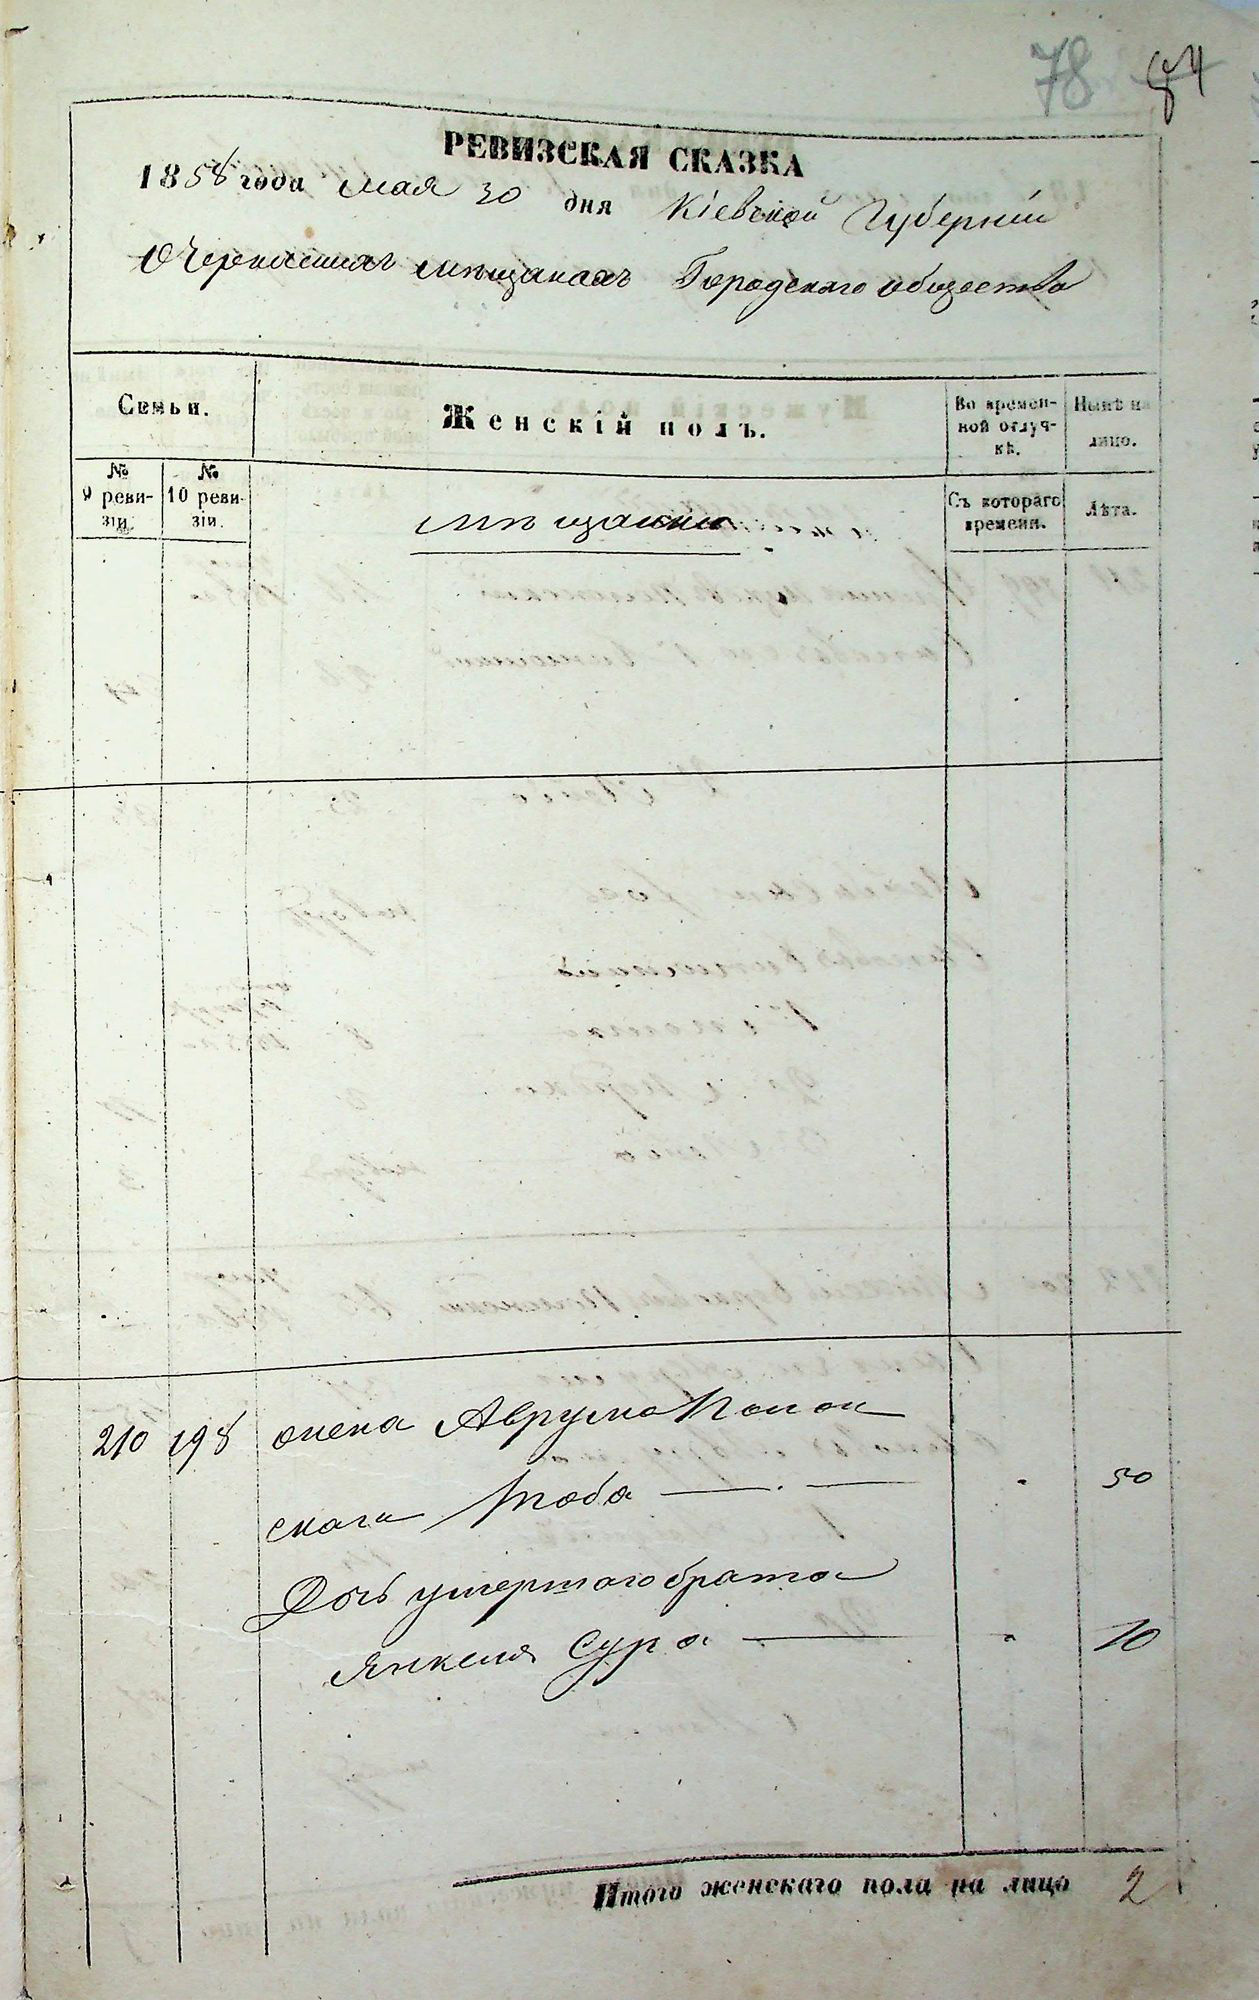 78 84
РЕВИЗСКАЯ СКАЗКА
1858 года мая 30 дня Кіевской Губерніи
О Черкаскихъ мѣщанахъ Городскаго общества
Семьи.
Женскій полъ.
Во времен-
ной отлуч-
кѣ.
Нынѣ на
лицо.
№
9 реви-
зіи.
№
10 реви-
зіи.
мѣщанки
Съ котораго
времени.
Лѣта.
210 198 жена Аврума
скаго Тоба — . — 50
Дочь умершаго брата
Янкеля Сура — 10
Итого женскаго пола на лицо 2